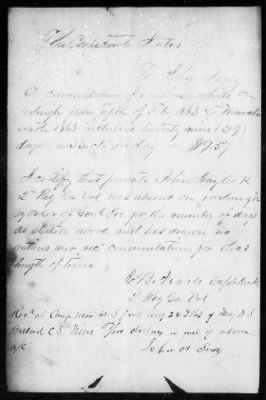 The Confederate States
To John Gay
To commutation for rations while on
furlough from fifth of Feby 1863 to March
1863 inclusive twenty nine (29)
days @ 33 cts per day $9.57
I certify that private John Gay Co K
2d Reg Ga Vol was absent on furlough
by order of Gen Lee for the number of days
as stated above and has drawn no
rations nor rec'd commutation for that
length of time
Capt Co K
2d Reg Ga Vol
Rec'd at Camp near Aug 24 1863 of Maj
C.S. Nine 57/100 dollars in full of above
a/c
John Gay